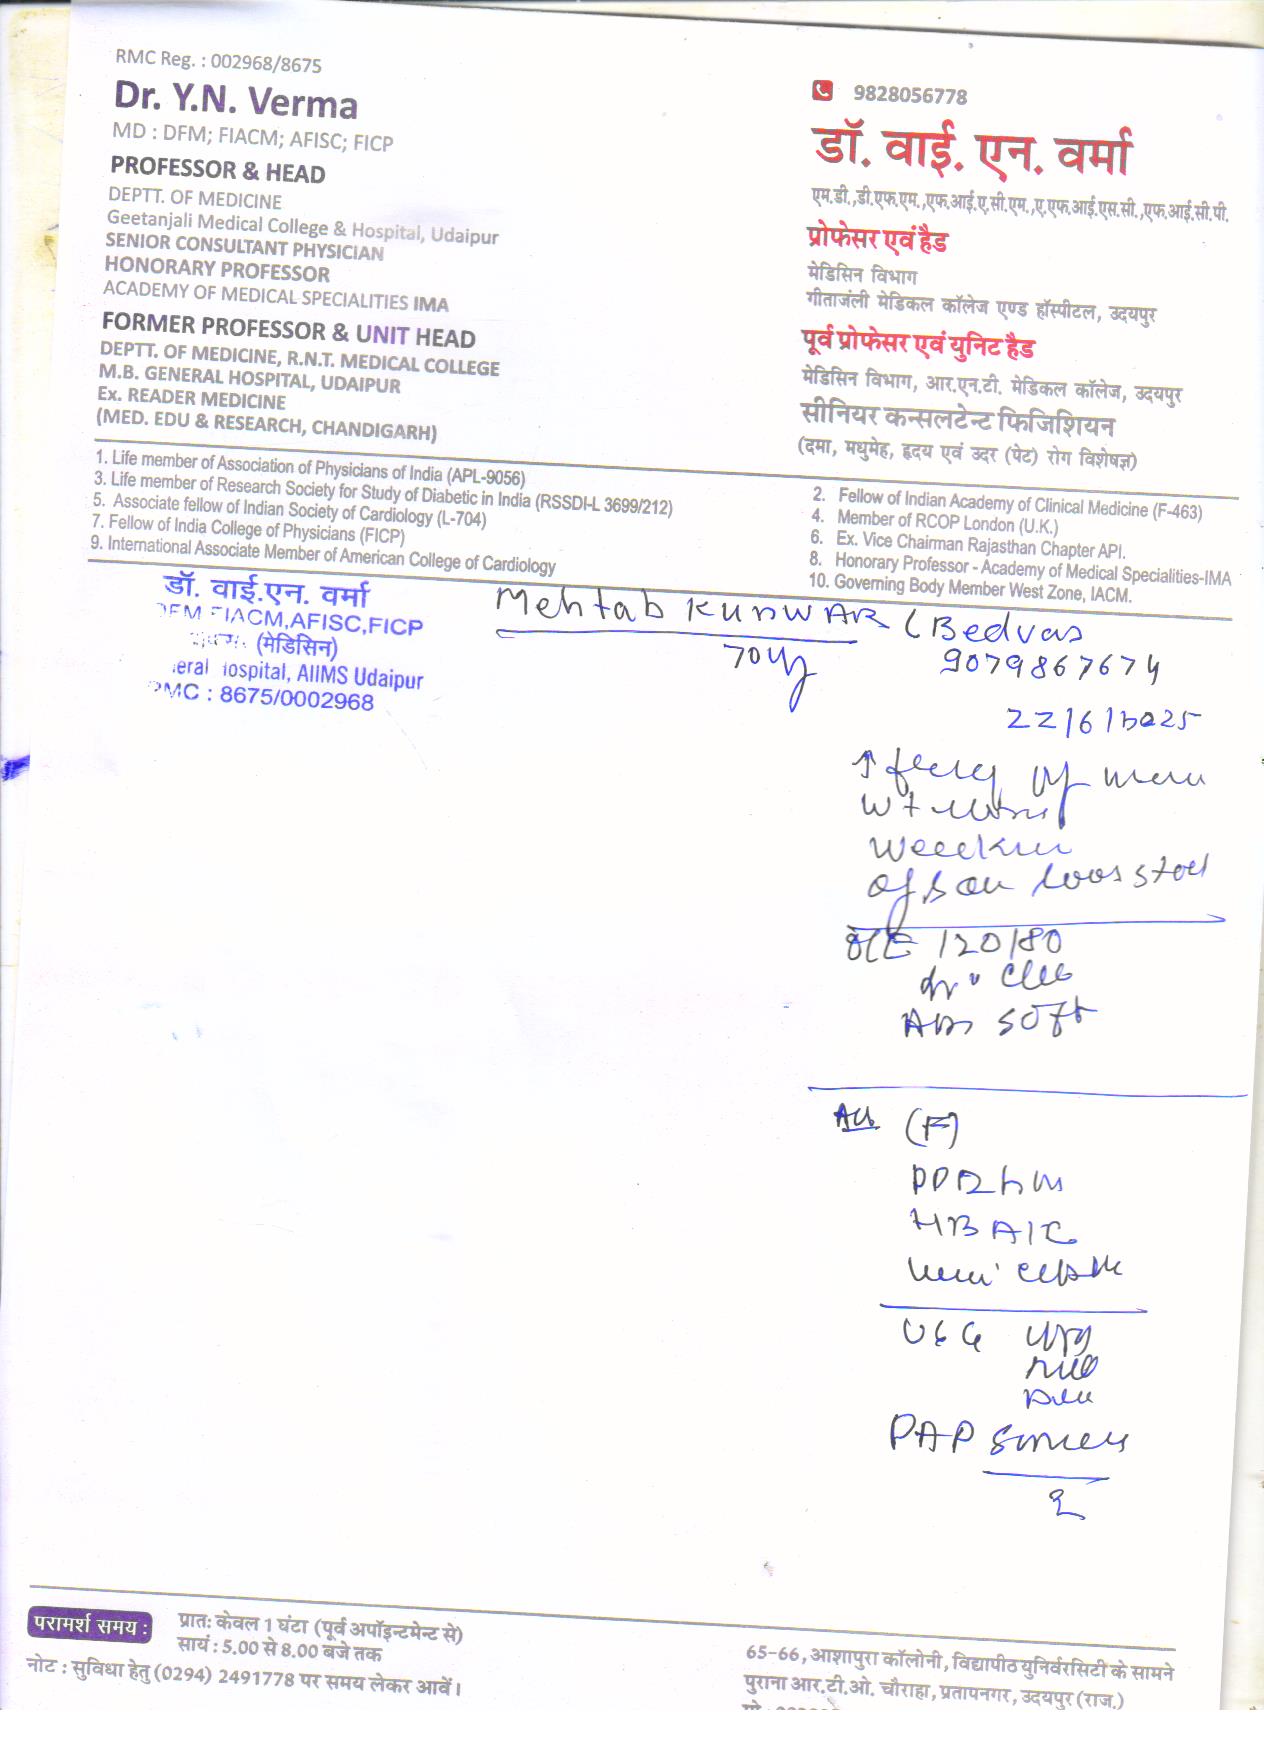 RMC Reg. : 002968/8675
Dr. Y.N. Verma
MD : DFM; FIACM; AFISC; FICP
PROFESSOR & HEAD
DEPTT. OF MEDICINE
Geetanjali Medical College & Hospital, Udaipur
SENIOR CONSULTANT PHYSICIAN
HONORARY PROFESSOR
ACADEMY OF MEDICAL SPECIALITIES IMA
FORMER PROFESSOR & UNIT HEAD
DEPTT. OF MEDICINE, R.N.T. MEDICAL COLLEGE
M.B. GENERAL HOSPITAL, UDAIPUR
Ex. READER MEDICINE
(MED. EDU & RESEARCH, CHANDIGARH)
9828056778
डॉ. वाई. एन. वर्मा
एम.डी.,डी.एफ.एम.,एफ.आई.ए.सी.एम.,ए.एफ.आई.एस.सी.,एफ.आई.सी.पी.
प्रोफेसर एवं हैड
मेडिसिन विभाग
गीताजंली मेडिकल कॉलेज एण्ड हॉस्पीटल, उदयपुर
पूर्व प्रोफेसर एवं युनिट हैड
मेडिसिन विभाग, आर.एन.टी. मेडिकल कॉलेज, उदयपुर
सीनियर कन्सलटेन्ट फिजिशियन
(दमा, मधुमेह, हृदय एवं उदर (पेट) रोग विशेषज्ञ)
1. Life member of Association of Physicians of India (APL-9056)
3. Life member of Research Society for Study of Diabetic in India (RSSDI-L 3699/212)
5. Associate fellow of Indian Society of Cardiology (L-704)
7. Fellow of India College of Physicians (FICP)
9. International Associate Member of American College of Cardiology
2. Fellow of Indian Academy of Clinical Medicine (F-463)
4. Member of RCOP London (U.K.)
6. Ex. Vice Chairman Rajasthan Chapter API.
8. Honorary Professor - Academy of Medical Specialities-IMA
10. Governing Body Member West Zone, IACM.
डॉ. वाई.एन. वर्मा
FIACM,AFISC,FICP
(मेडिसिन)
Hospital, AIIMS Udaipur
RMC : 8675/0002968
Mehtab KUNWAR (Bedvas
70 9079867674
22/6/2025
↑ of
of loos stool
O/E 120/80
Abd soft
(F)
HBA1C
USG
PAP
परामर्श समय :
प्रातः केवल 1 घंटा (पूर्व अपॉइन्टमेन्ट से)
सायं : 5.00 से 8.00 बजे तक
नोट : सुविधा हेतु (0294) 2491778 पर समय लेकर आवें।
65-66, आशापुरा कॉलोनी, विद्यापीठ युनिर्वरसिटी के सामने
पुराना आर.टी.ओ. चौराहा, प्रतापनगर, उदयपुर (राज.)